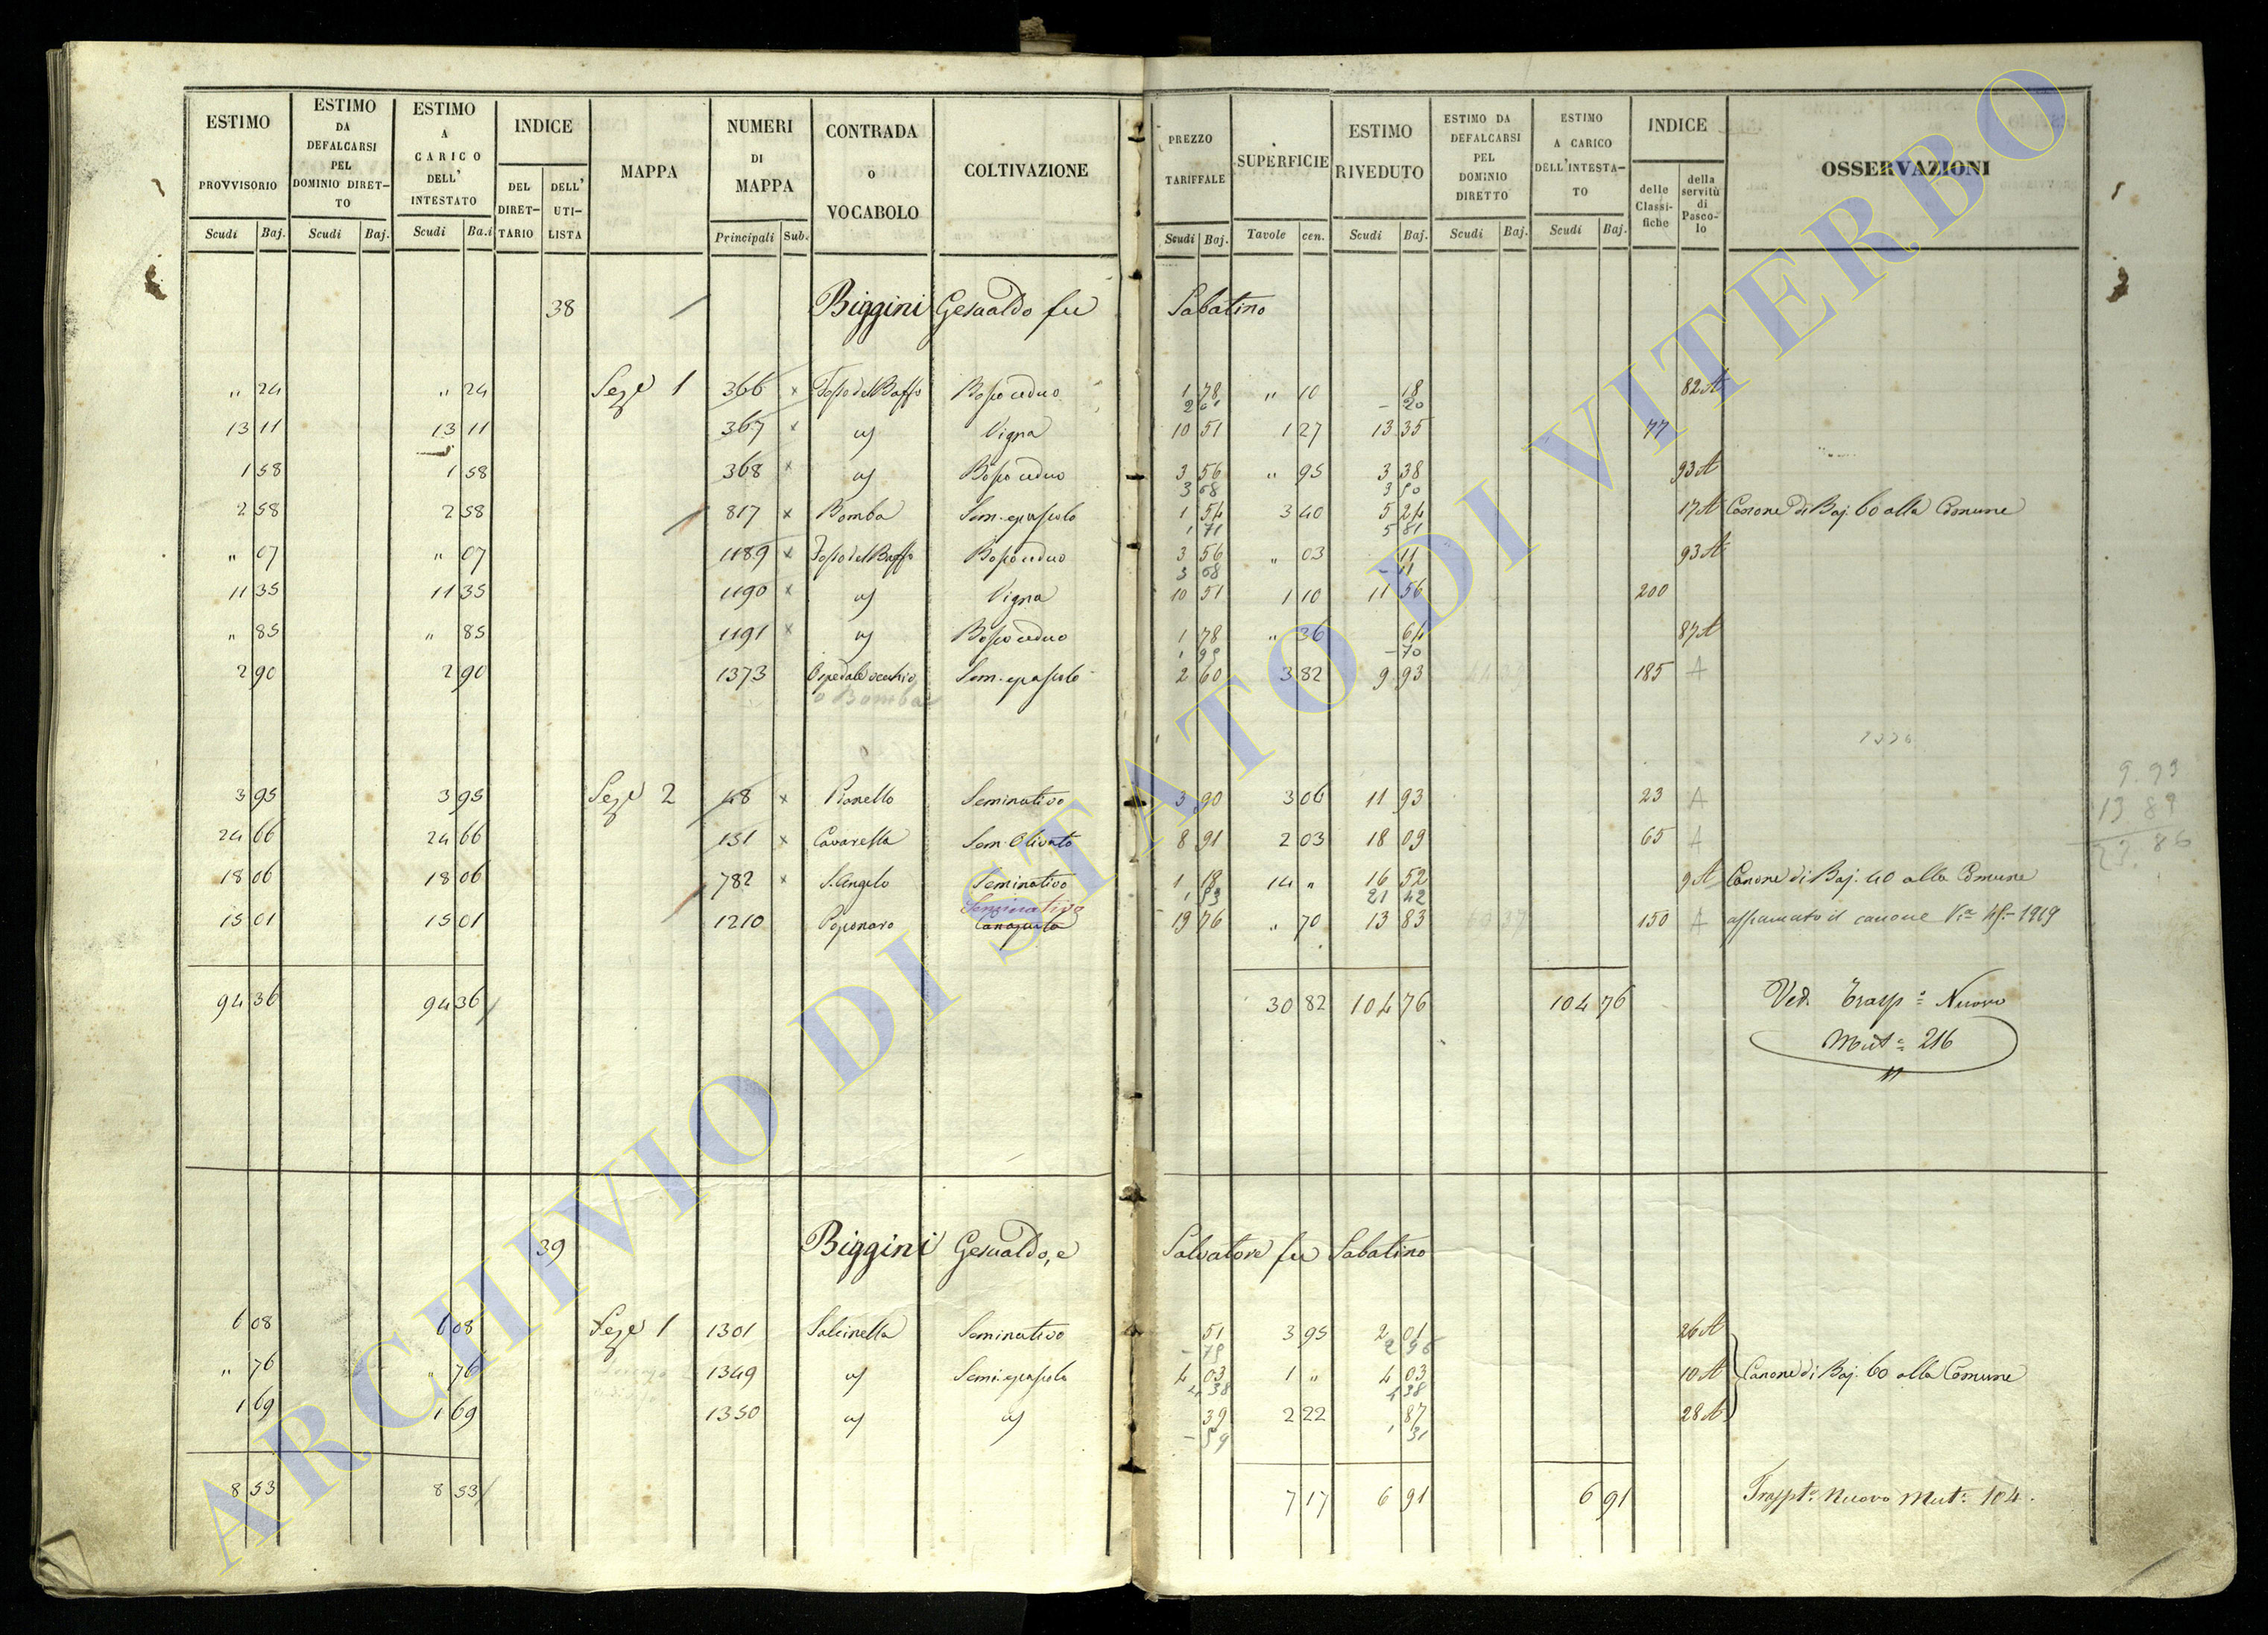 ESTIMO PROVVISORIO Scudi Baj. | ESTIMO DA DEFALCARSI PEL DOMINIO DIRET-TO Scudi Baj. | ESTIMO A CARICO DELL' INTESTATO Scudi Ba.i | INDICE DEL DIRET-TARIO | DELL' UTI-LISTA | MAPPA | NUMERI DI MAPPA Principali Sub. | CONTRADA o VOCABOLO | COLTIVAZIONE | PREZZO TARIFFALE Scudi Baj. | SUPERFICIE Tavole cen. | ESTIMO RIVEDUTO Scudi Baj. | ESTIMO DA DEFALCARSI PEL DOMINIO DIRETTO Scudi Baj. | ESTIMO A CARICO DELL'INTESTA-TO Scudi Baj. | INDICE delle Classi-fiche | della servitù di Pasco-lo | OSSERVAZIONI
38 Biggini Gesualdo fu Sabatino
" 24 " 24 Seze 1 366 x Fosso del Baffo Bosco ceduo 1 78 " 10 18 82 A
2 01 - 20
13 11 13 11 367 x id Vigna 10 51 1 27 13 35 77
1 58 1 58 368 x id Bosco ceduo 3 56 " 95 3 38 93 A
3 68 3 50
2 58 2 58 817 x Bomba Sem. e pascolo 1 54 3 40 5 24 17 A Canone di Baj. 60 alla Comune
1 71 5 81
" 07 " 07 1189 x Fosso del Baffo Bosco ceduo 3 56 " 03 11 93 A
3 68 - 11
11 35 11 35 1190 x id Vigna 10 51 1 10 11 56 200
" 85 " 85 1191 x id Bosco ceduo 1 78 " 36 64 87 A
1 95 - 70
2 90 2 90 1373 Ospedale vecchio Sem. e pascolo 2 60 3 82 9 93 185 A
o Bomba
9.93
3 95 3 95 Seze 2 48 x Pianello Seminativo 3 90 3 06 11 93 23 A
24 66 24 66 131 x Cavarella Sem. Olivato 8 91 2 03 18 09 65 A
18 06 18 06 782 x S. Angelo Seminativo 1 18 14 " 16 52 9 A Canone di Baj. 40 alla Comune
1 53 21 42
Seminativo
15 01 15 01 1210 Poponaro Canapula 19 76 " 70 13 83 150 A affrancato il canone 1919
94 36 94 36 30 82 104 76 104 76 Ved. Trasp.o Nuovo
Mut.e 216
39 Biggini Gesualdo, e Salvatore fu Sabatino
6 08 6 08 Seze 1 1301 Salcinella Seminativo 51 3 95 2 01 26 A
- 75 2 96
" 76 " 76 1349 id Sem. e pascolo 4 03 1 " 4 03 10 A Canone di Baj. 60 alla Comune
4 38 4 38
1 69 1 69 1350 id id 39 2 22 87 28 A
- 59 1 31
8 53 8 53 7 17 6 91 6 91 Traspt.o Nuovo Mut.e 104.
ARCHIVIO DI STATO DI VITERBO